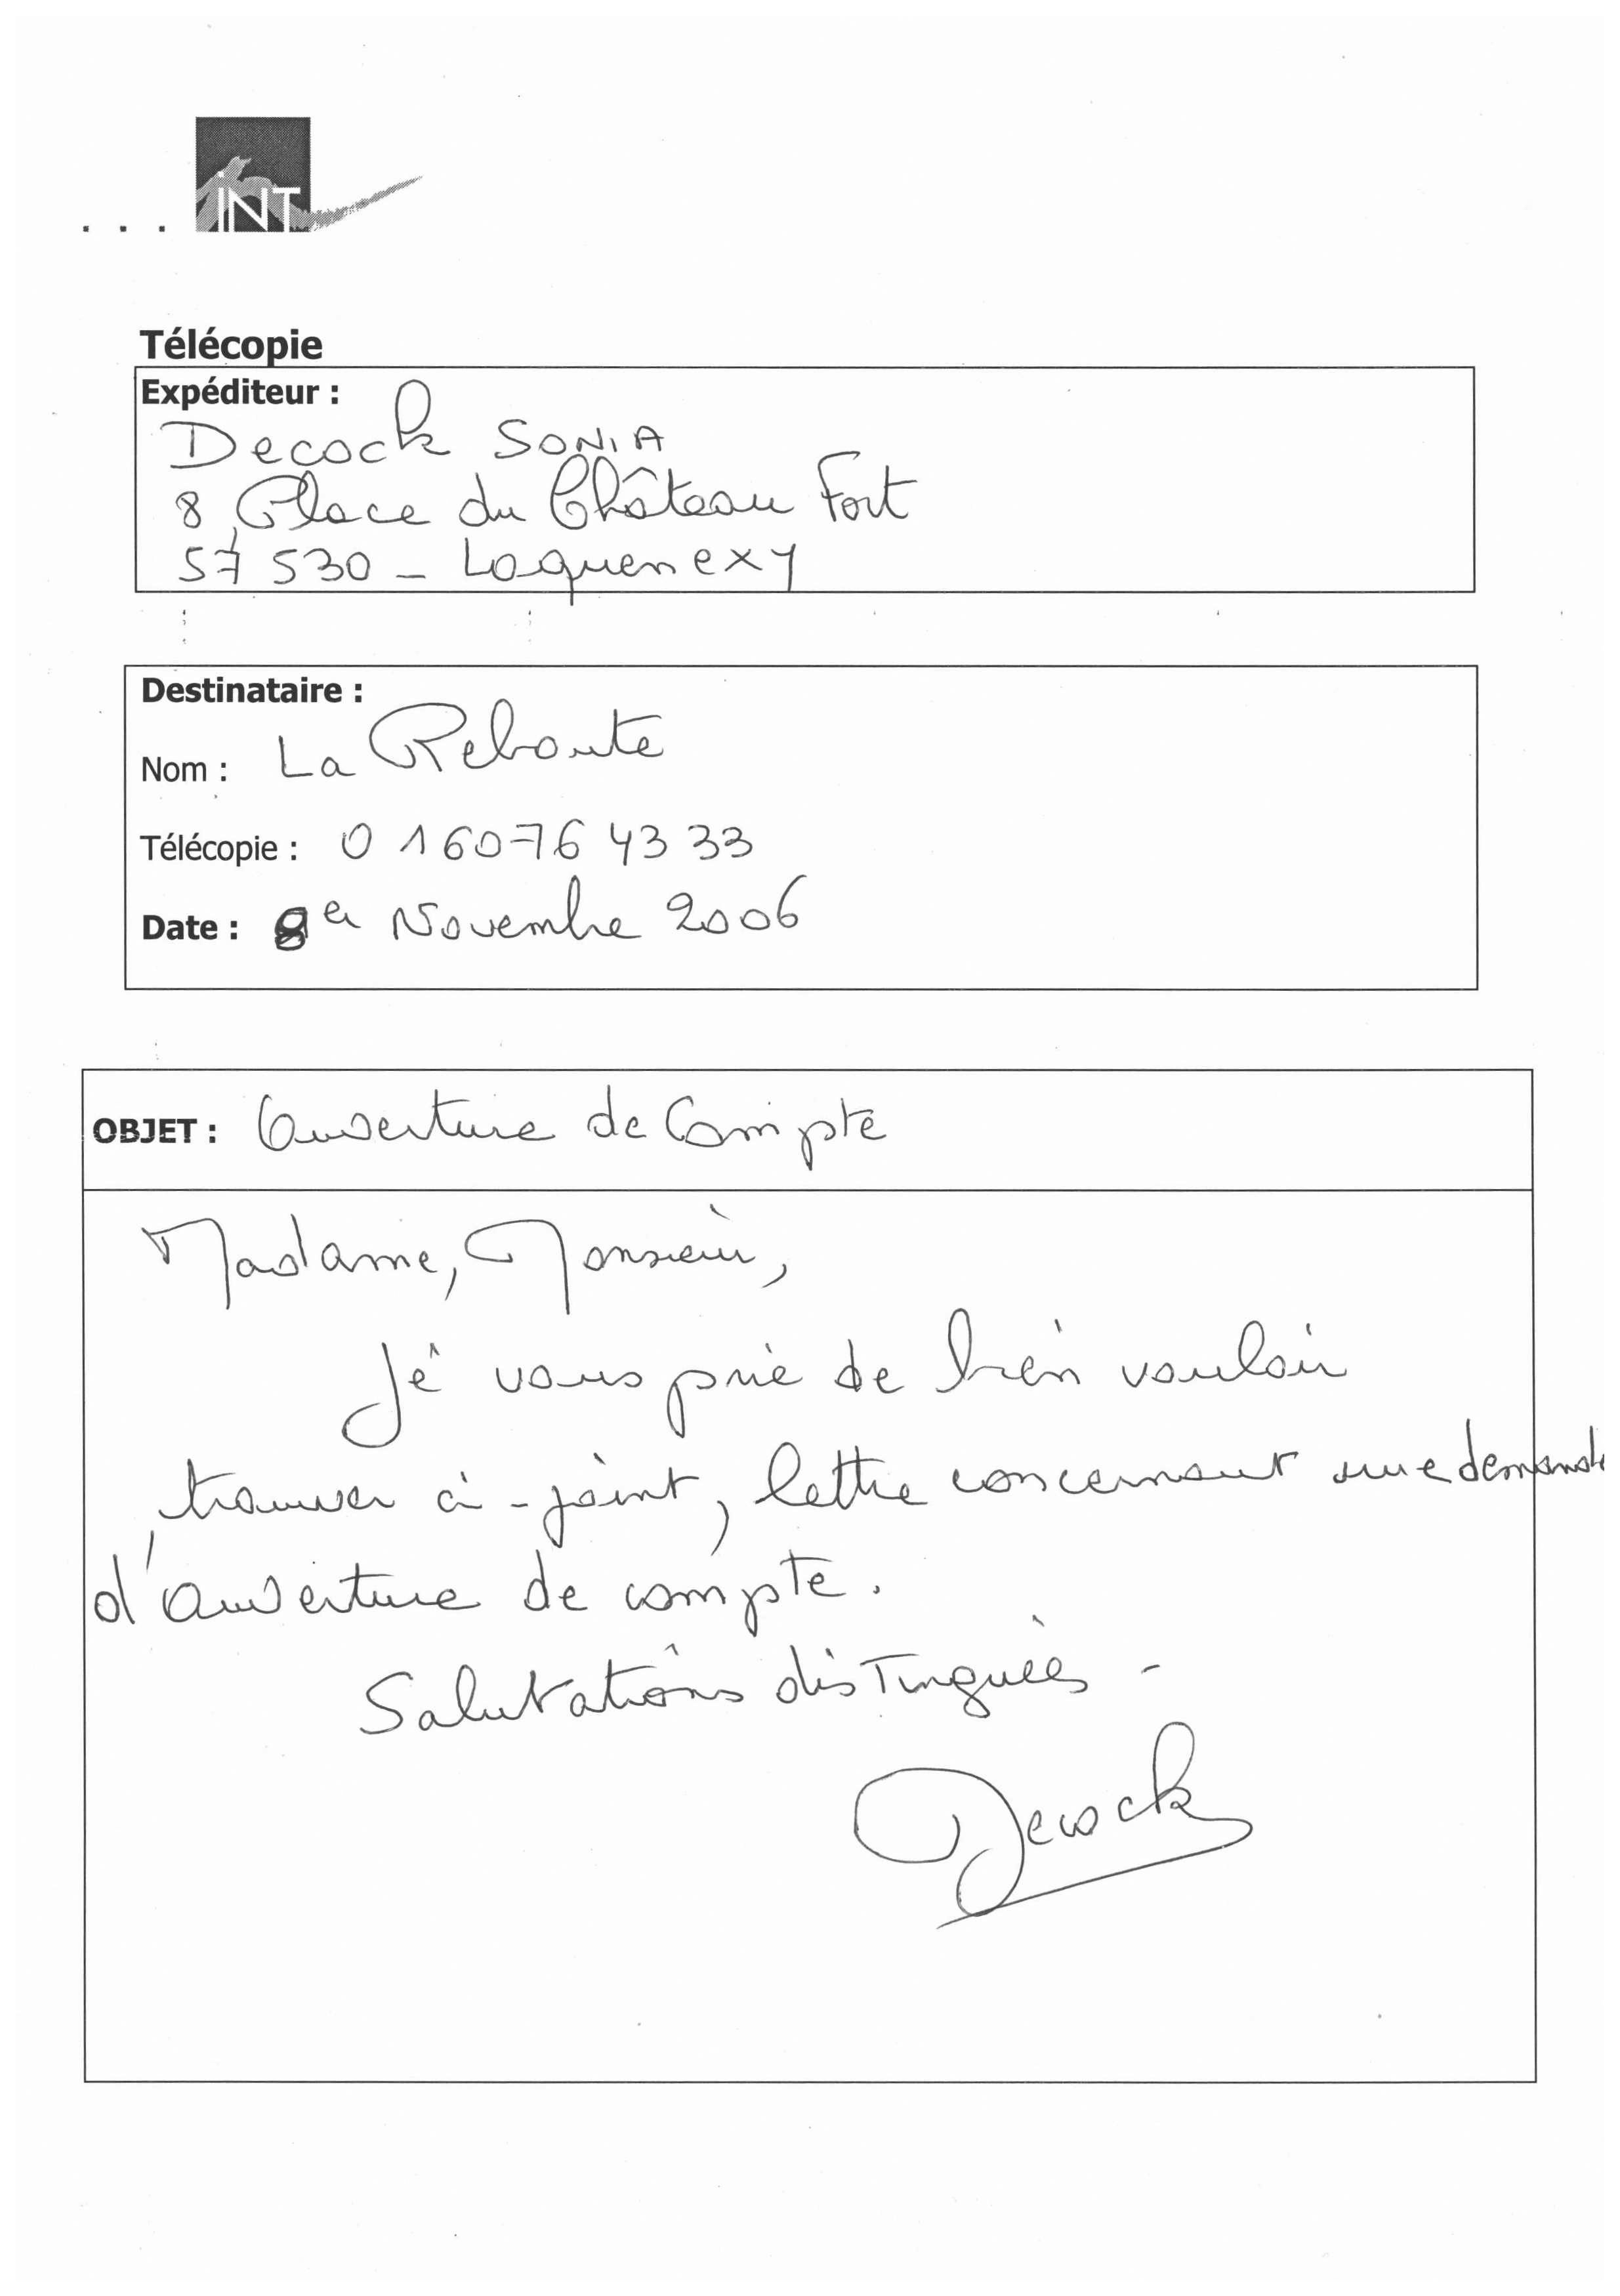 ... INT
Télécopie
Expéditeur :
Decock SONIA
8, Place du Château Fort
57 530 - Laquenexy
Destinataire :
Nom : La Reboute
Télécopie : 0 16076 43 33
Date : er Novembre 2006
OBJET : Ouverture de Compte
Madame, Monsieur,
Je vous prie de bien vouloir
trouver ci-joint, lettre concernant une demande
d'ouverture de compte.
Salutations distinguées -
Decock